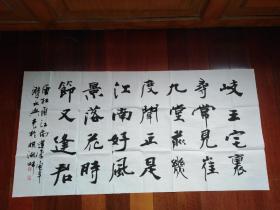 岐王宅裏
尋常見崔
九堂前幾
度聞正是
江南好風
景落花時
節又逢君
唐杜甫江南逢李龜年